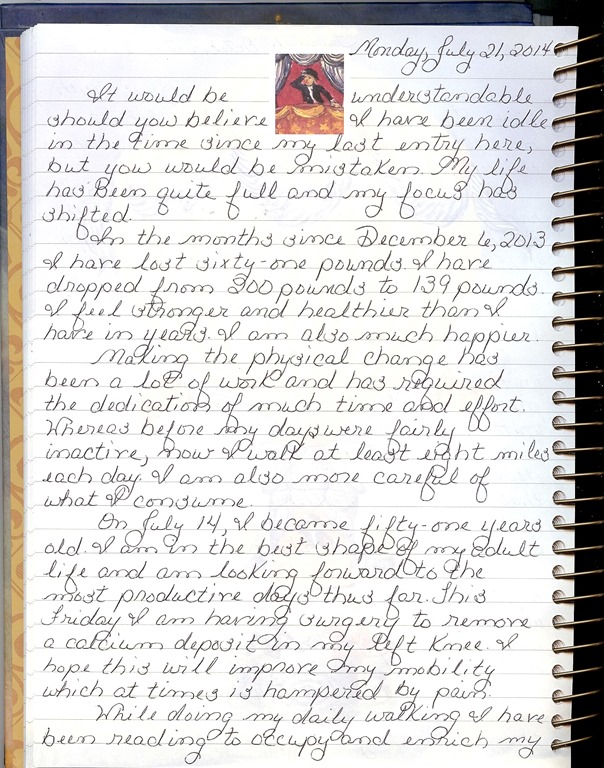 Monday, July 21, 2014
It would be understandable
should you believe I have been idle
in the time since my last entry here,
but you would be mistaken. My life
has been quite full and my focus has
shifted.
In the months since December 6, 2013
I have lost sixty-one pounds. I have
dropped from 200 pounds to 139 pounds.
I feel stronger and healthier than I
have in years. I am also much happier.
Making the physical change has
been a lot of work and has required
the dedication of much time and effort.
Whereas before my days were fairly
inactive, now I walk at least eight miles
each day. I am also more careful of
what I consume.
On July 14, I became fifty-one years
old. I am in the best shape of my adult
life and am looking forward to the
most productive days thus far. This
Friday I am having surgery to remove
a calcium deposit in my left knee. I
hope this will improve my mobility
which at times is hampered by pain.
While doing my daily walking I have
been reading to occupy and enrich my